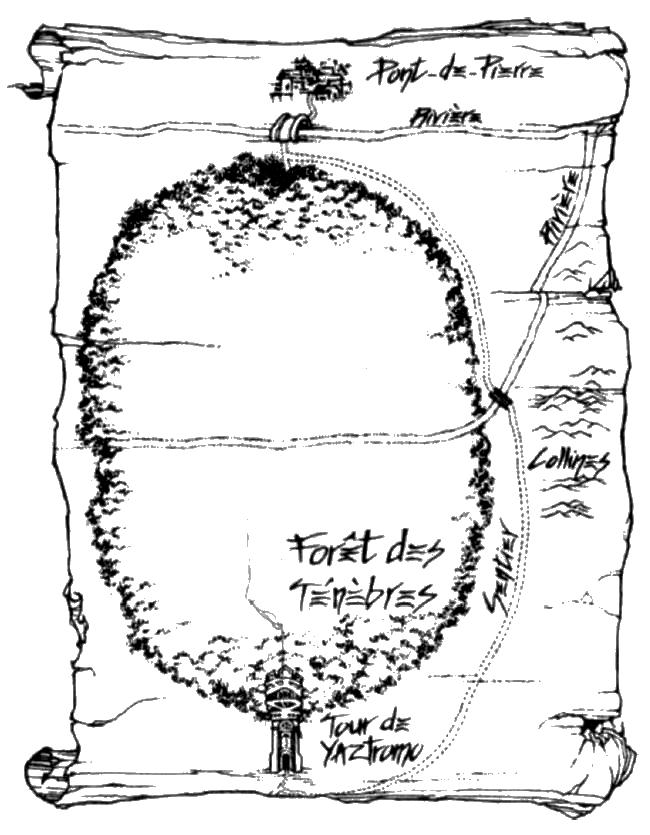 Pont-de-Pierre
Rivière
Rivière
Collines
Forêt des
Ténèbres
Sentier
Tour de
Yaztromo